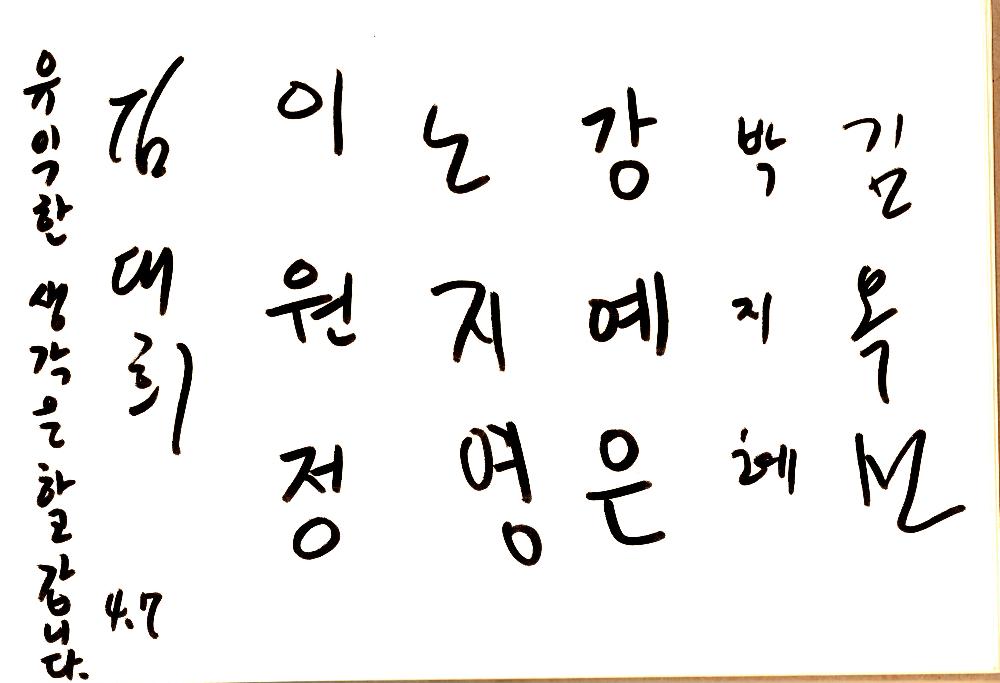 유익한 생각은 하고 갑니다.
김대희
4.7
이원정
노지영
강예은
박지혜
김옥선